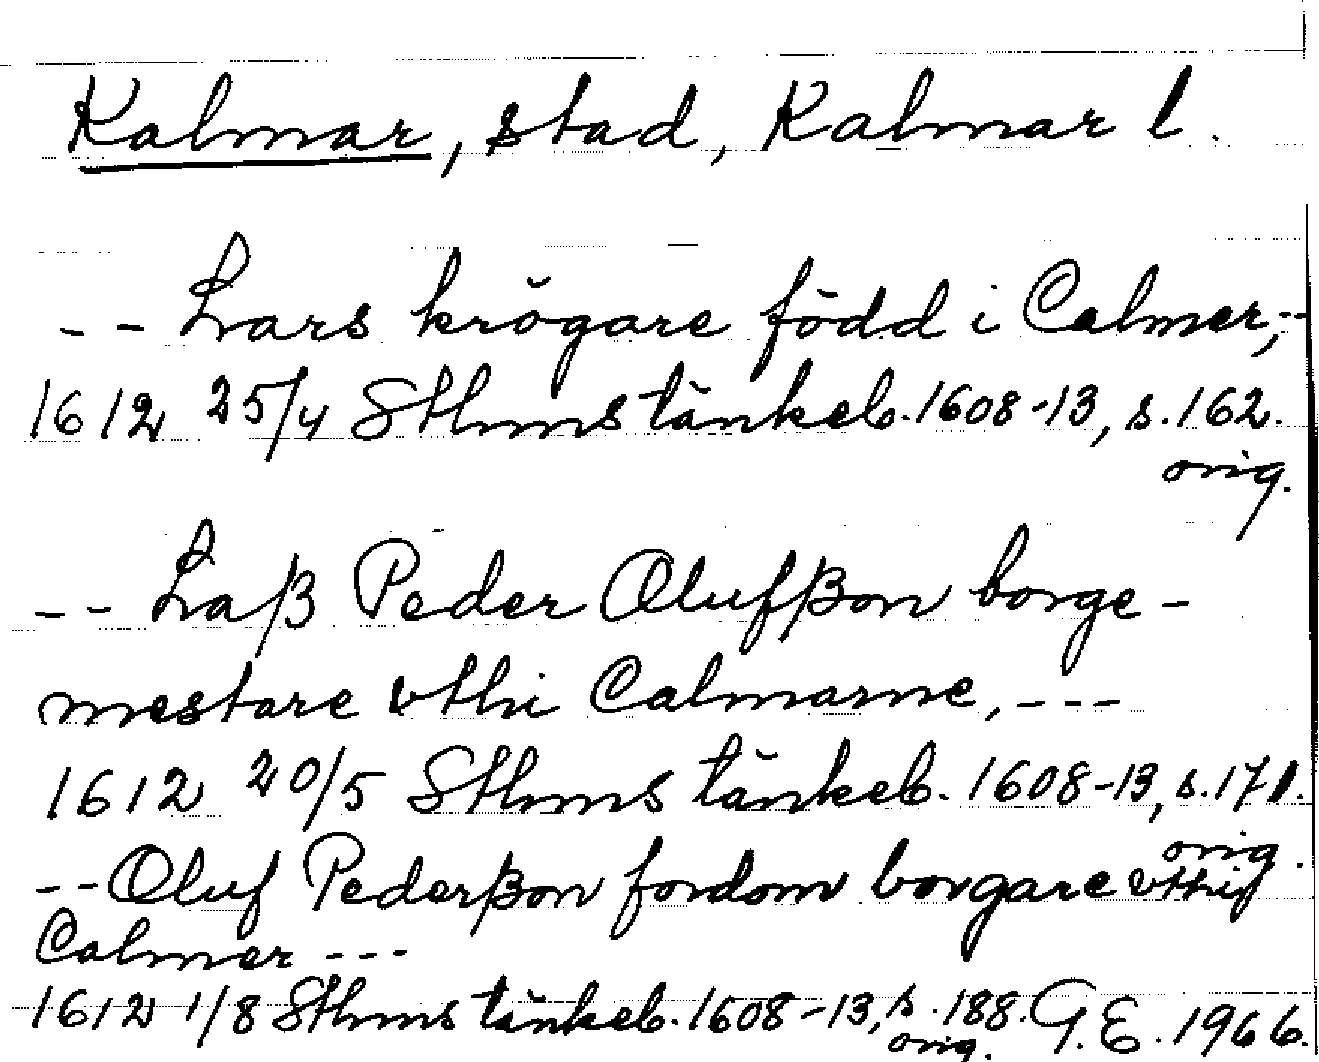 Kalmar, stad, Kalmar l.
-- Lars krögare född i Calmer,--
1612 25/4 Sthms tänkeb. 1608-13, s. 162.
orig.
-- Laß Peder Olufßon borge-
mestare vthi Calmarne, ---
1612 20/5 Sthms tänkeb. 1608-13, s. 171.
orig.
-- Oluf Pederßon fordom borgare vthij
Calmer ---
1612 1/8 Sthms tänkeb. 1608-13, s. 188. G.E. 1966.
orig.